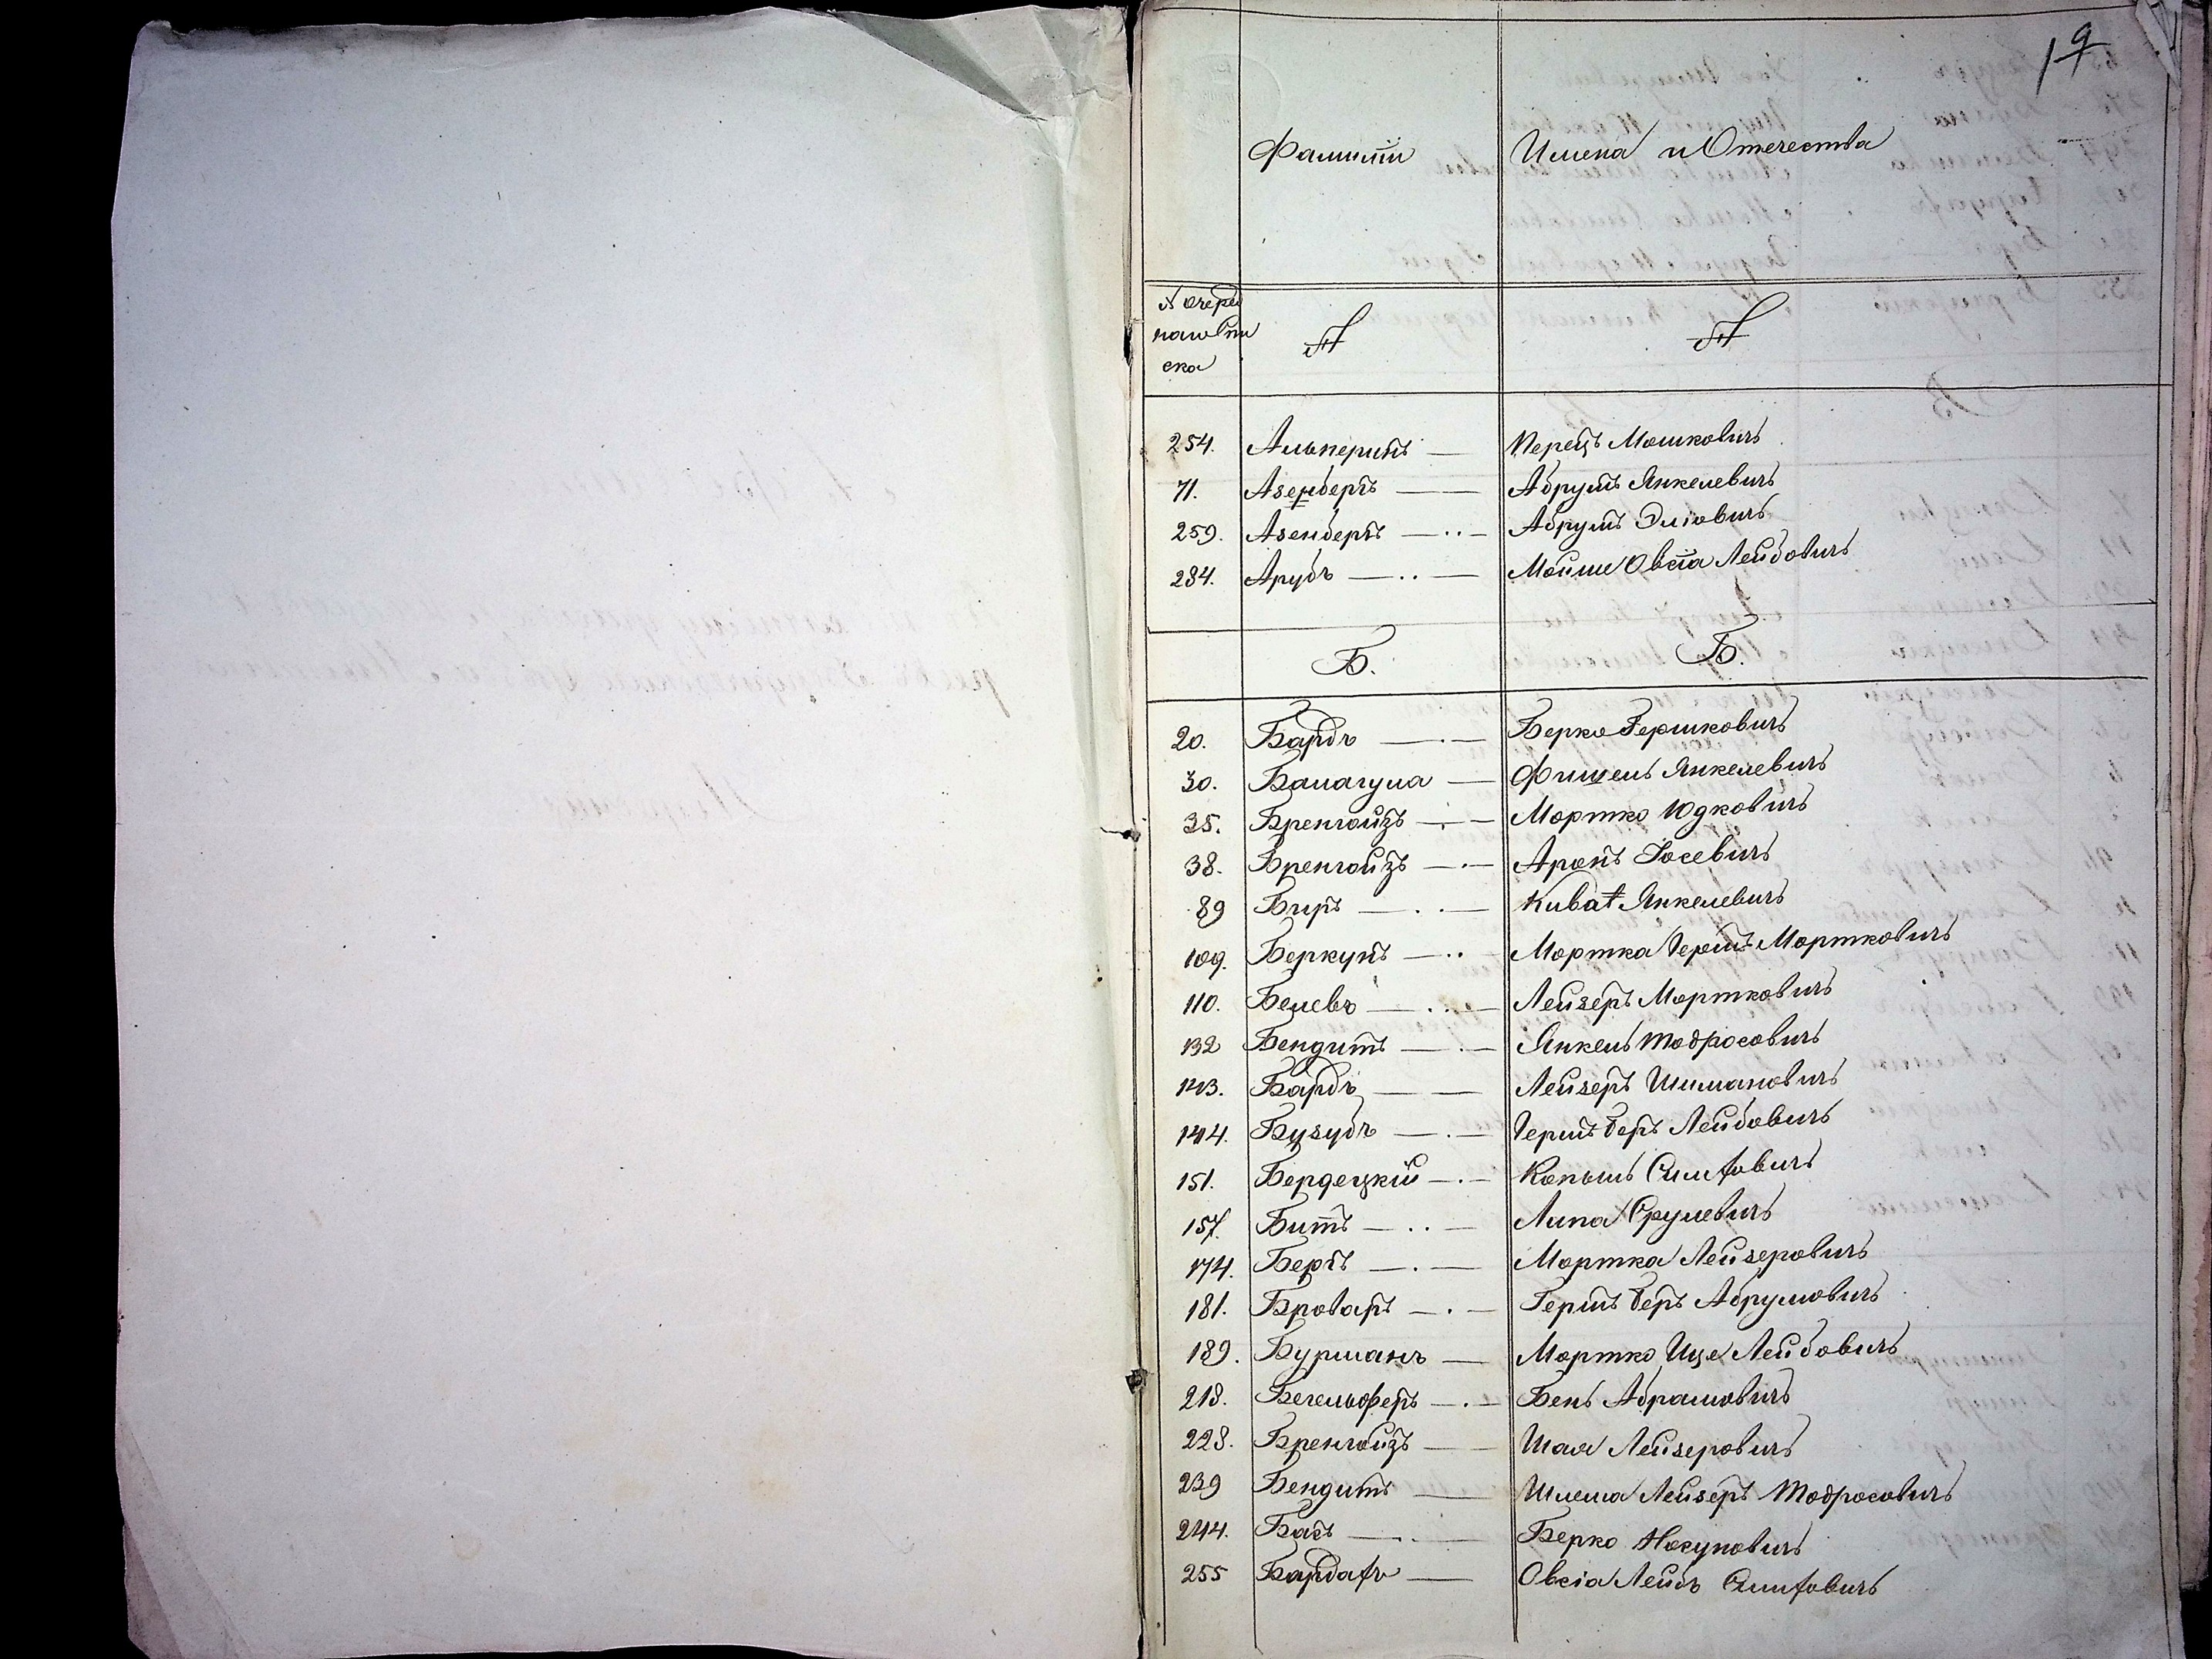 19
Фамиліи Имена и Отечества
№ очеред
наго спи
ска
А А
254. Альперинъ — Перецъ Мошковичъ
71. Азенбергъ — Абрумъ Янкелевичъ
259. Азенбергъ — Абрумъ Эліовичъ
284. Арубъ — Мойше Овсія Лейбовичъ
Б. Б.
20. Бардъ — Берко Гершковичъ
30. Балагула — Фишель Янкелевичъ
35. Бренгойзъ — Мортко Юдковичъ
38. Бренгойзъ — Аронъ Іосевичъ
89 Биръ — Кива Янкелевичъ
109. Беркунъ — Мортка Гершъ Мортковичъ
110. Белевъ — Лейзеръ Мортковичъ
132 Бендитъ — Янкель Тодросовичъ
143. Бардъ — Лейзеръ Шимановичъ
144. Бузубъ — Гершъ Беръ Лейбовичъ
151. Бердецкій — Копыль Симховичъ
157. Битъ — Липа Срулевичъ
174. Бергъ — Мортка Лейзеровичъ
181. Броваръ — Гершъ Беръ Абрумовичъ
189. Бурманъ — Мортко Ице Лейбовичъ
218. Бегельферъ — Бень Абрамовичъ
228. Бренгойзъ — Шая Лейзеровичъ
239 Бендитъ — Шлема Лейзеръ Тодросовичъ
244. Басъ — Берко Носуновичъ
255 Бардахъ — Овсія Лейбъ Симховичъ